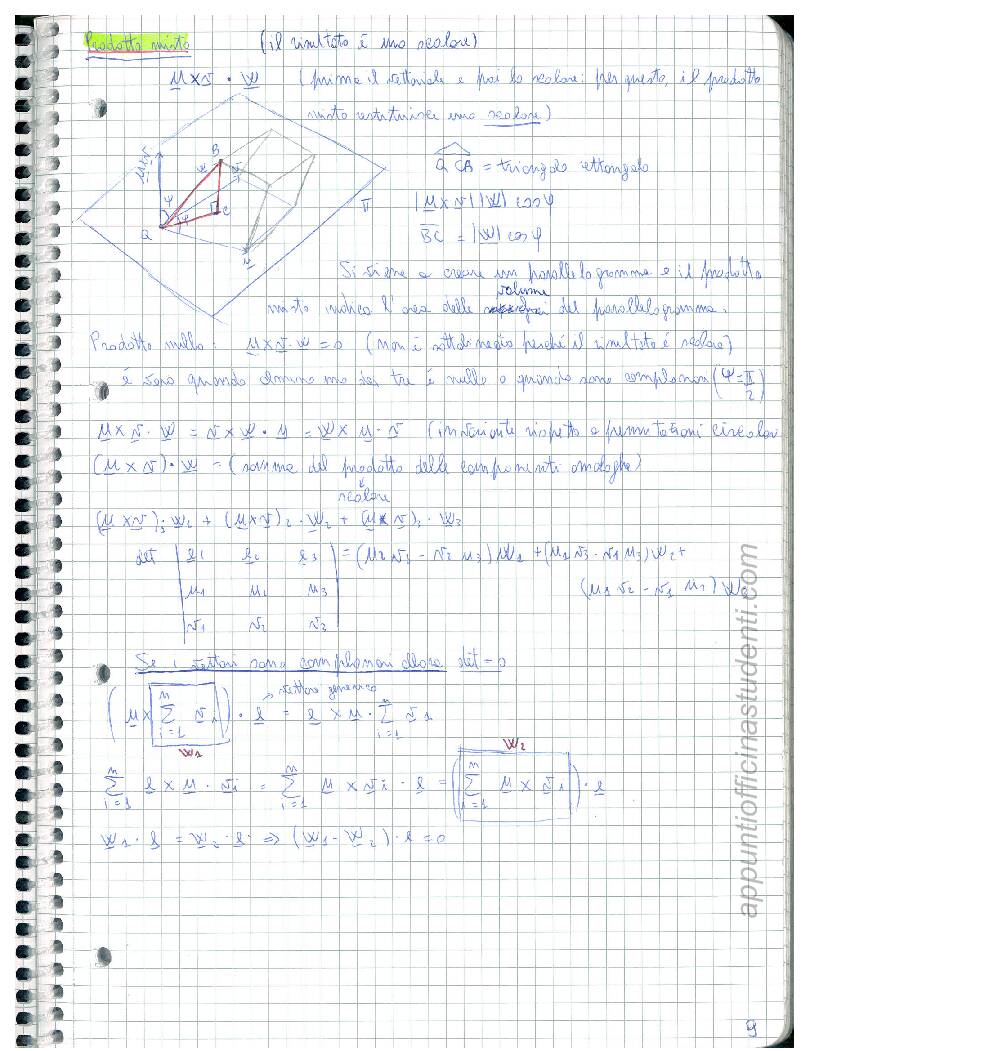 Prodotto misto (il risultato è uno scalare)
u × v · w (prima il vettoriale e poi lo scalare: per questo, il prodotto
misto restituisce uno scalare)
u×v
B
w
v
C
φ
ψ
Q
u
π
QCB = triangolo rettangolo
|u × v| |w| cos φ
BC = |w| cos φ
Si viene a creare un parallelogramma e il prodotto
volume
misto indica l'area delle del parallelogramma.
Prodotto nullo: u × v · w = 0 (non è sottolineato perché il risultato è scalare)
è zero quando almeno uno dei tre è nullo o quando sono complanari (φ = π/2)
u × v · w = v × w · u = w × u · v (invariante rispetto a permutazioni circolari
(u × v) · w = (somma del prodotto delle componenti omologhe)
scalare
(u × v)₁ · w₁ + (u × v)₂ · w₂ + (u × v)₃ · w₃
det | e₁ e₂ e₃ | = (u₂ v₃ - v₂ u₃) w₁ + (u₁ v₃ - v₁ u₃) w₂ +
| u₁ u₂ u₃ | (u₁ v₂ - v₁ u₂) w
| v₁ v₂ v₃ |
Se i vettori sono complanari allora det = 0
→ vettore generico
(u × ∑ i=1 n vi) · e = e × u · ∑ i=1 n vi
w₁
w₂
∑ i=1 n e × u · vi = ∑ i=1 n u × vi · e = (∑ i=1 n u × vi) · e
w₁ · e = w₂ · e => (w₁ - w₂) · e = 0
appuntiofficinastudenti.com
9